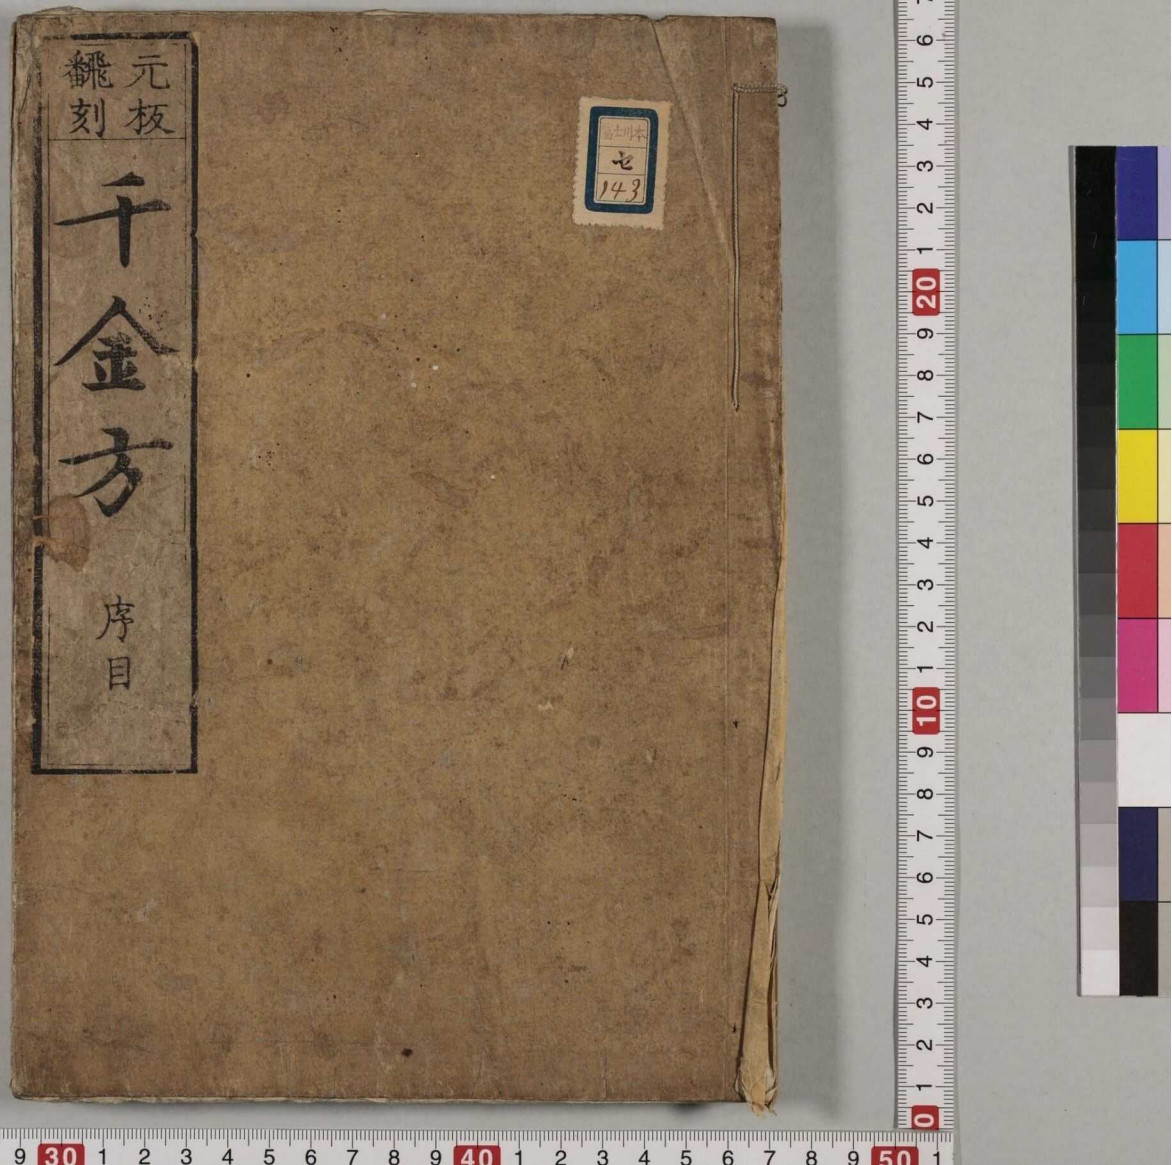 元板
飜刻
千金方
序目
富士川本
セ
143
6 5 4 3 2 1 20 9 8 7 6 5 4 3 2 1 10 9 8 7 6 5 4 3 2 1 0
9 30 1 2 3 4 5 6 7 8 9 40 1 2 3 4 5 6 7 8 9 50 1